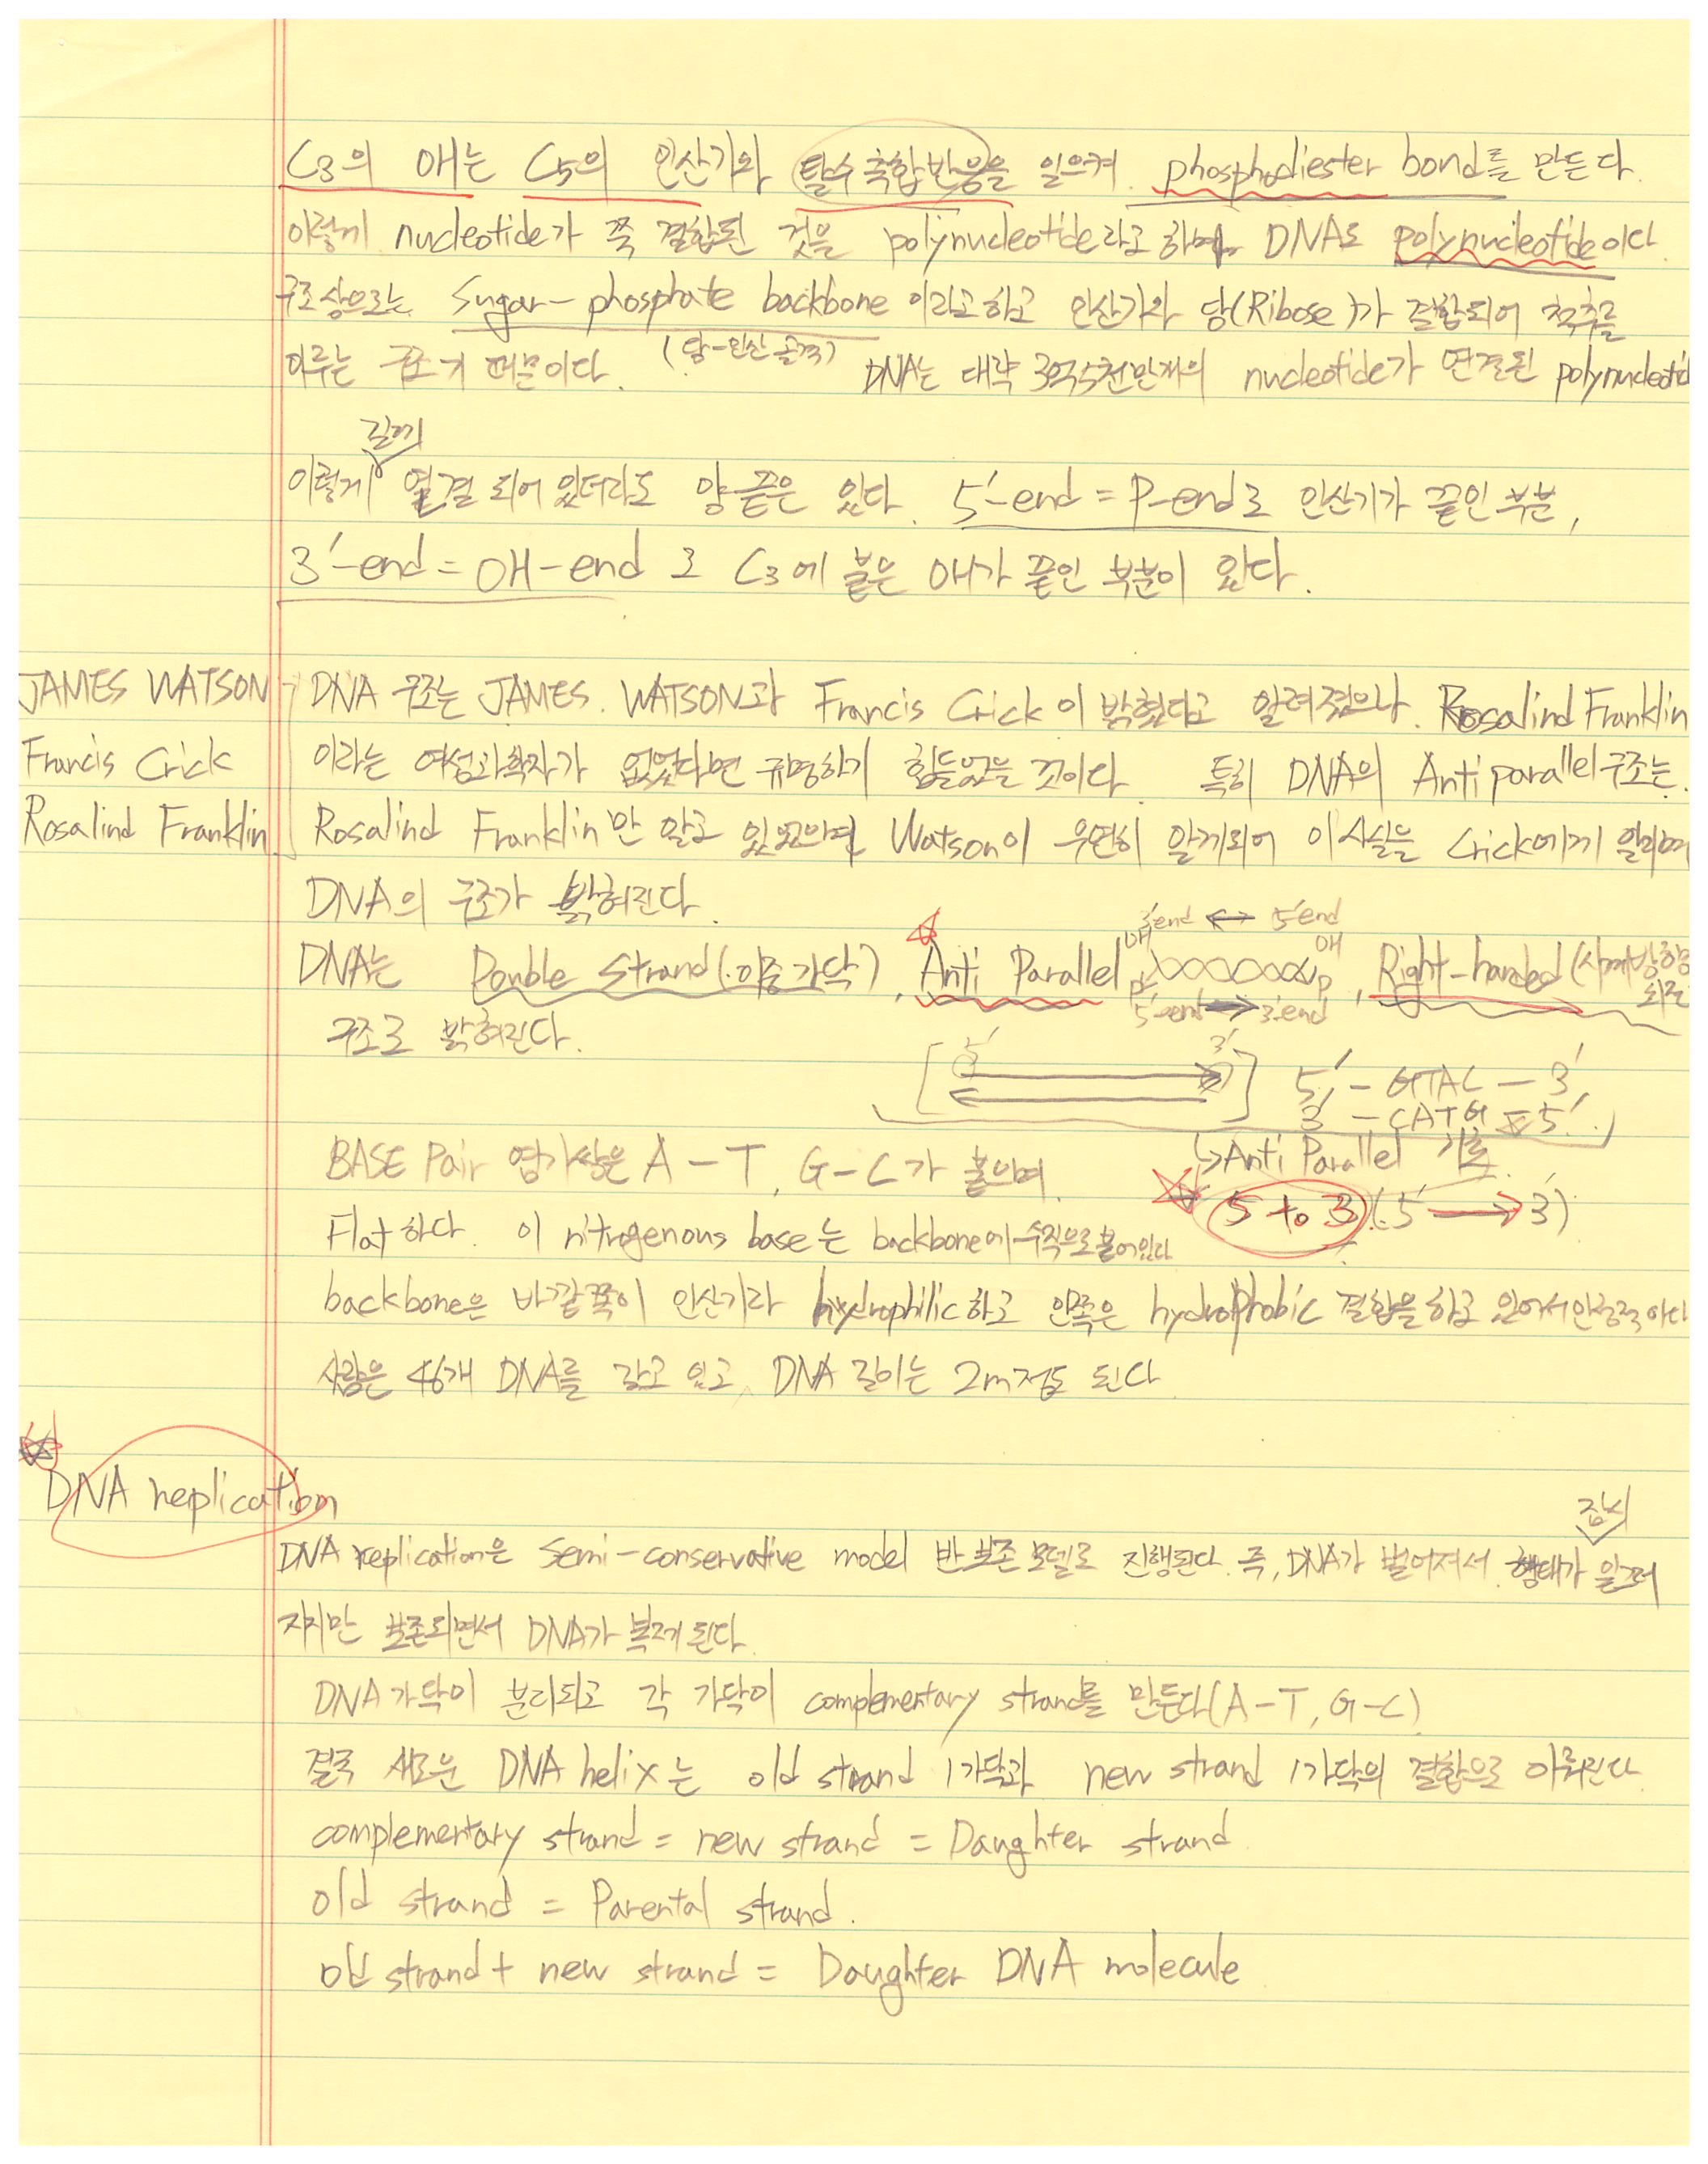 C3의 OH는 C5의 인산기와 탈수축합반응을 일으켜. phosphodiester bond를 만든다.
이렇게 nucleotide가 쭉 결합된 것을 polynucleotide라고 하며, DNA도 polynucleotide이다.
구조상으로는 Sugar-phosphate backbone 이라고하고 인산기와 당(Ribose)가 결합되어 척추를
(당-인산 골격)
이루는 구조기 때문이다. DNA는 대략 3억5천만개의 nucleotide가 연결된 polynucleotid
길게
이렇게 연결 되어 있더라도 양끝은 있다. 5'-end = P-end로 인산기가 끝인 부분,
3'-end = OH-end 로 C3에 붙은 OH가 끝인 부분이 있다.
JAMES WATSON
Francis Crick
Rosalind Franklin
DNA 구조는 JAMES. WATSON과 Francis Crick이 밝혔다고 알려졌으나. Rosalind Franklin
이라는 여성과학자가 없었다면 규명하기 힘들었을 것이다. 특히 DNA의 Anti parallel구조는.
Rosalind Franklin만 알고 있었으며 Watson이 우연히 알게되어 이사실을 Crick에게 알리며
DNA의 구조가 밝혀진다.
3'end ↔ 5'end
OH OH
DNA는 Double Strand(이중가닥), Anti Parallel P P, Right-handed (시계방향
회전
5'-end ↔ 3'-end
구조로 밝혀진다.
5' 3'
5' - GTAC - 3'
3' - CATG - 5'
↳ Anti Parallel 기호
BASE Pair 염기쌍은 A-T, G-C가 붙으며.
5 to 3 (5' → 3')
Flat하다. 이 nitrogenous base는 backbone에 수직으로 붙어있다
backbone은 바깥쪽이 인산기라 hydrophilic하고 안쪽은 hydrophobic 결합을 하고 있어서 안정적이다
사람은 46개 DNA를 갖고 있고, DNA 길이는 2m정도 된다
DNA replication
잠시
DNA replication은 Semi-conservative model 반보존모델로 진행된다. 즉, DNA가 벌어져서 형태가 일그러
지지만 보존되면서 DNA가 복제된다.
DNA가닥이 분리되고 각 가닥이 complementary strand를 만든다(A-T, G-C)
결국 새로운 DNA helix는 old strand 1가닥과 new strand 1가닥의 결합으로 이뤄진다
complementary strand = new strand = Daughter strand
old strand = Parental strand.
old strand + new strand = Daughter DNA molecule